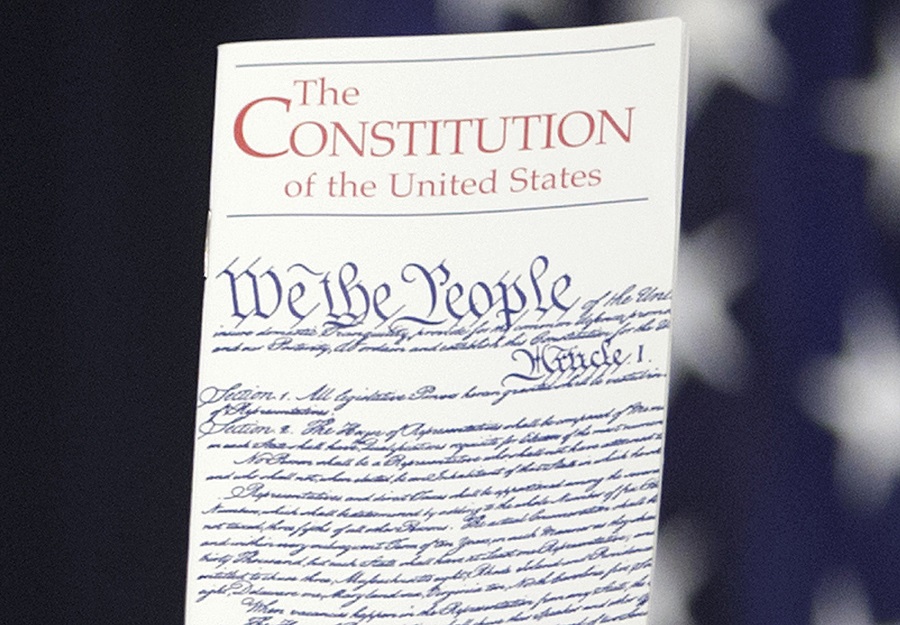 The
CONSTITUTION
of the United States
We the People of the Uni
insure domestic Tranquility, provide for the common defence, promo
and our Posterity, do ordain and establish this Constitution for the
Article I.
Section. 1. All legislative Powers herein granted shall be vested in
of Representatives.
Section. 2. The House of Representatives shall be composed of Mem
in each State shall have Qualifications requisite for Electors of the most nume
No Person shall be a Representative who shall not have attained
and who shall not, when elected, be an Inhabitant of that State in which
Representatives and direct Taxes shall be apportioned among the
Numbers, which shall be determined by adding to the whole Number of free
not taxed, three fifths of all other Persons. The actual Enumeration shall
and within every subsequent Term of ten Years, in such Manner as they
thirty Thousand, but each State shall have at Least one Representative;
entitled to chuse three, Massachusetts eight, Rhode Island and Providence
eight, Delaware one, Maryland six, Virginia ten, North Carolina five,
When vacancies happen in the Representation from any State, the